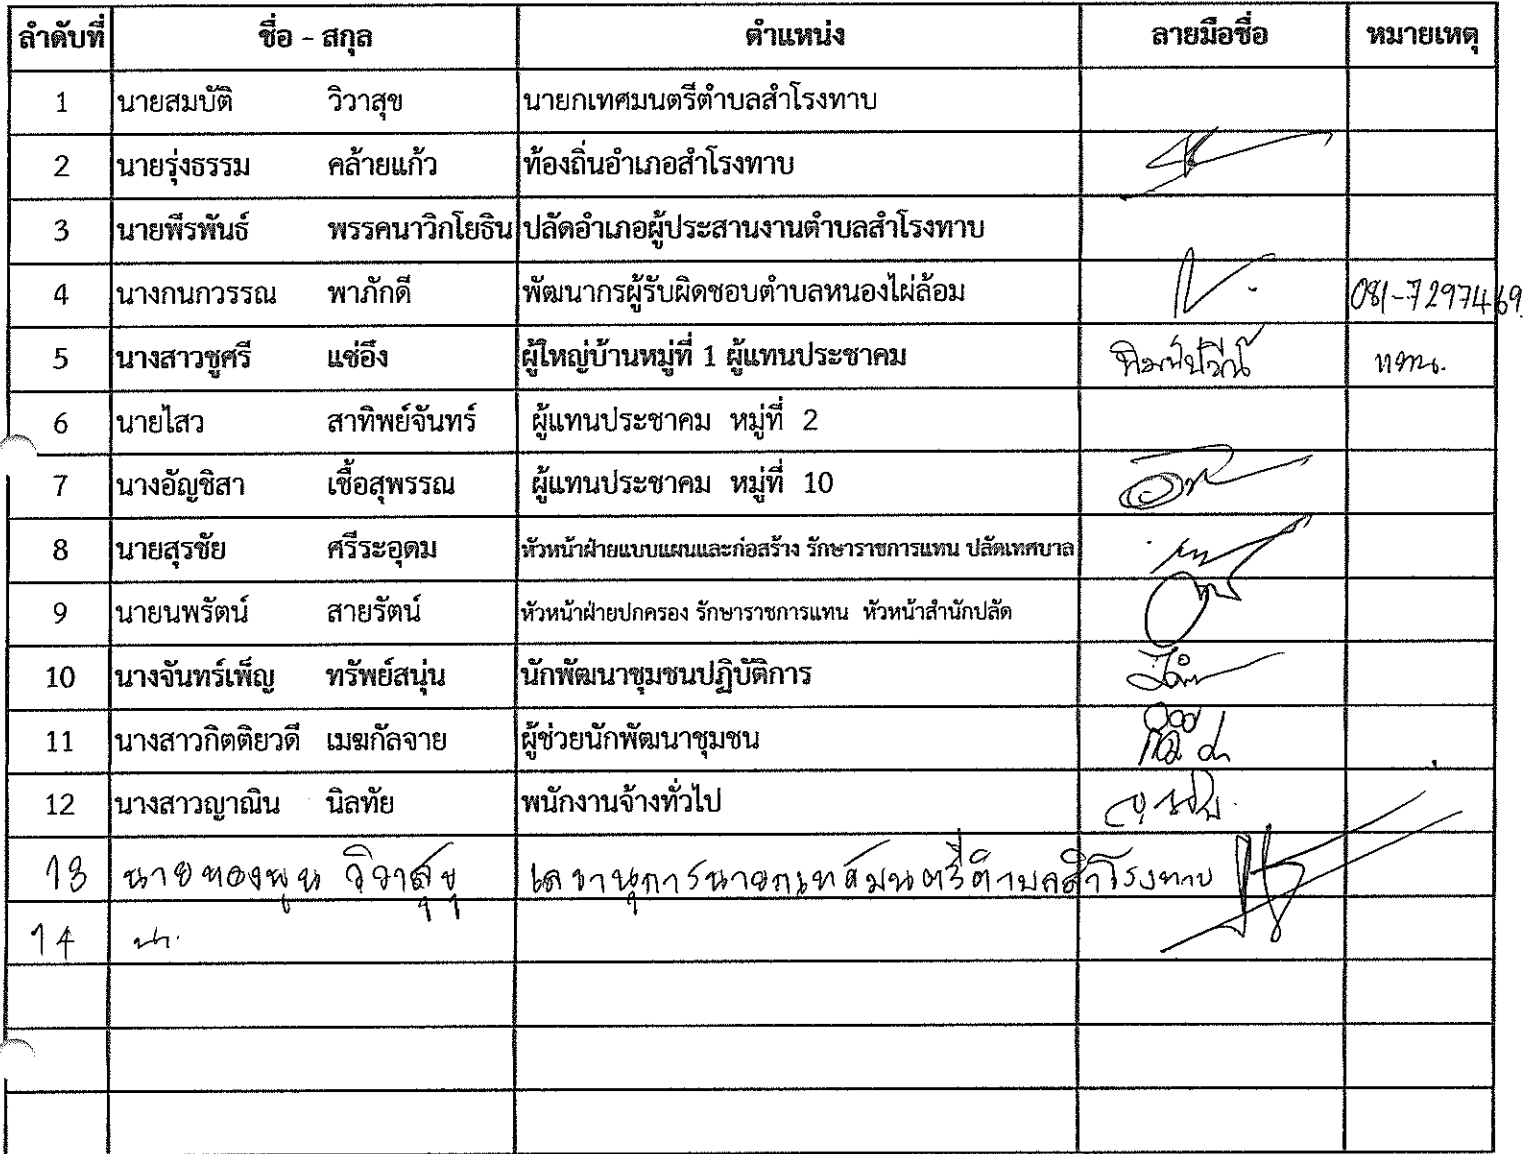 ลำดับที่ ชื่อ - สกุล ตำแหน่ง ลายมือชื่อ หมายเหตุ
1 นายสมบัติ วิวาสุข นายกเทศมนตรีตำบลสำโรงทาบ
2 นายรุ่งธรรม คล้ายแก้ว ท้องถิ่นอำเภอสำโรงทาบ
3 นายพีรพันธ์ พรรคนาวิกโยธิน ปลัดอำเภอผู้ประสานงานตำบลสำโรงทาบ
4 นางกนกวรรณ พาภักดี พัฒนากรผู้รับผิดชอบตำบลหนองไผ่ล้อม 081-7297469
5 นางสาวชูศรี แซ่อึง ผู้ใหญ่บ้านหมู่ที่ 1 ผู้แทนประชาคม แทน.
6 นายไสว สาทิพย์จันทร์ ผู้แทนประชาคม หมู่ที่ 2
7 นางอัญชิสา เชื้อสุพรรณ ผู้แทนประชาคม หมู่ที่ 10
8 นายสุรชัย ศรีระอุดม หัวหน้าฝ่ายแบบแผนและก่อสร้าง รักษาราชการแทน ปลัดเทศบาล
9 นายนพรัตน์ สายรัตน์ หัวหน้าฝ่ายปกครอง รักษาราชการแทน หัวหน้าสำนักปลัด
10 นางจันทร์เพ็ญ ทรัพย์สนุ่น นักพัฒนาชุมชนปฏิบัติการ
11 นางสาวกิตติยวดี เมฆกัลจาย ผู้ช่วยนักพัฒนาชุมชน
12 นางสาวญาณิน นิลทัย พนักงานจ้างทั่วไป
13 นายทองพูน วิวาสุข เลขานุการนายกเทศมนตรีตำบลสำโรงทาบ
14 นา.